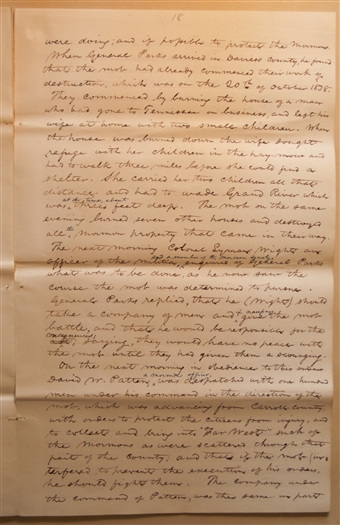 18
were doing, and if possible to protect the Mormons
When General Parks arrived in Daviess County, he found
that the mob had already commenced their work of
destruction, which was on the 20th of October 1838.
They commenced by burning the house of a man
who had gone to Tennessee on business, and left his
wife at home with two small children. When
the house was burned down the wife sought
refuge with her children in the hay-mow and
had to walk three miles before she could find a
shelter. She carried her two children all that
distance and had to wade Grand River which
at the time about
was, three feet deep. The mob on the same
evening burned seven other houses and destroyed
all the Mormon property that came in their way.
The next morning Colonel Lyman Wight an
officer of the militia, enquired of General Parks
what was to be done, as he now saw the
course the mob was determined to pursue.
General Parks replied, that he (Wight) should
take a company of men and give the mob
battle, and that he would be responsible for the
consequences
saying, they would have no peace with
the mob until they had given them a scourging.
On the next morning in obedience to this order
a mormon officer
David W. Patten, was despatched with one hundred
men under his command in the direction of the
mob, which was advancing from Carroll county
with orders to protect the citizens from injury, and
to collect and bring into "Far West" such of
the Mormons as were scattered through that
part of the county, and that if the mob in-
terfered to prevent the execution of his orders,
he should fight them. The company under
the command of Patten, was the same in part